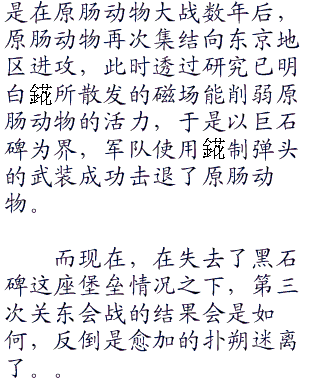 是在原肠动物大战数年后，
原肠动物再次集结向东京地
区进攻，此时透过研究已明
白錵所散发的磁场能削弱原
肠动物的活力，于是以巨石
碑为界，军队使用錵制弹头
的武装成功击退了原肠动
物。
而现在，在失去了黑石
碑这座堡垒情况之下，第三
次关东会战的结果会是如
何，反倒是愈加的扑朔迷离
了。。